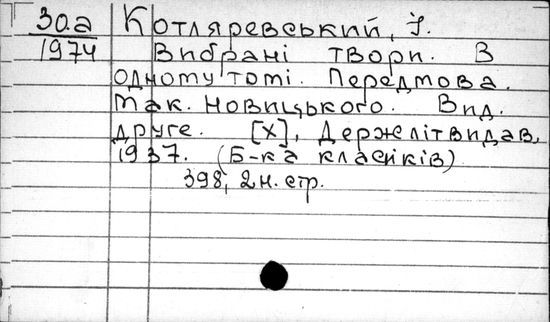 30.а Котляревський, І.
1974 Вибрані твори. В
одному томі. Передмова.
Мак. Новицького. Вид.
друге. [X], Держлітвидав,
1937. (Б-ка класиків)
398, 2 н. стр.